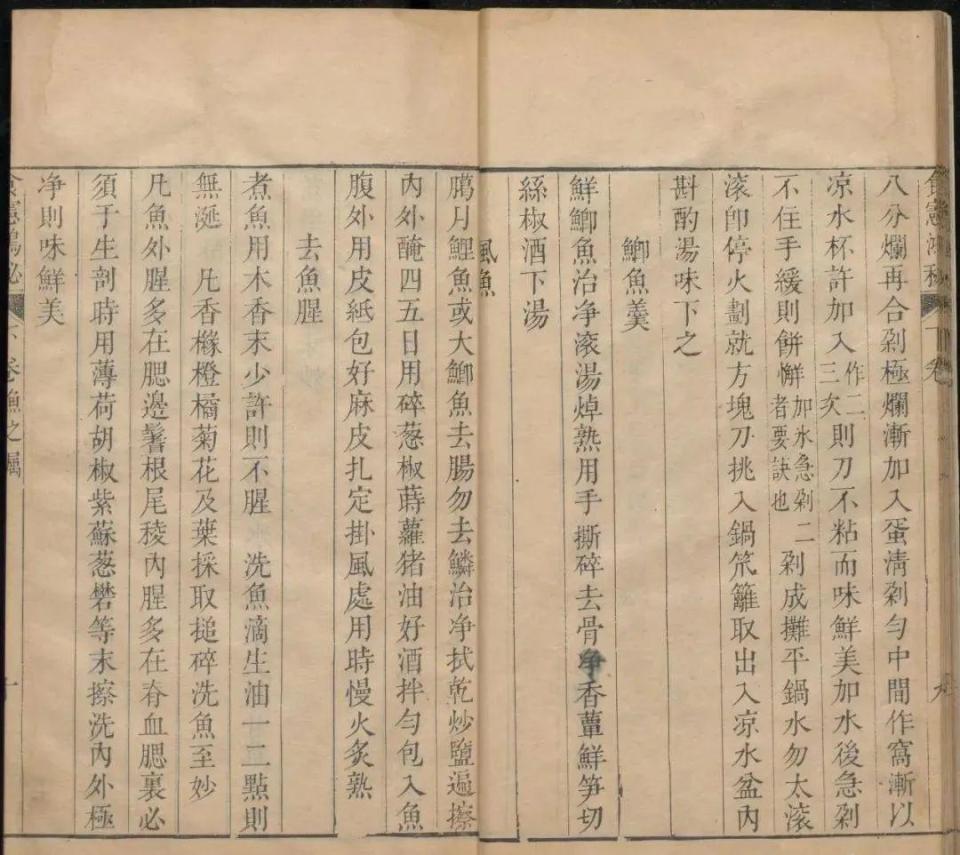 食憲鴻秘 下卷 九
八分爛再合剁極爛漸加入蛋清剁勻中間作窩漸以
凉水杯許加入作二三次則刀不粘而味鮮美加水後急剁
不住手緩則餅懈加水急剁二者要訣也剁成攤平鍋水勿太滚
滚卽停火劃就方塊刀挑入鍋笊籬取出入凉水盆內
斟酌湯味下之
鯽魚羹
鮮鯽魚治净滚湯焯熟用手撕碎去骨净香蕈鮮笋切
絲椒酒下湯
風魚
臈月鯉魚或大鯽魚去腸勿去鱗治净拭乾炒鹽遍擦
內外醃四五日用碎葱椒蒔蘿猪油好酒拌勻包入魚
腹外用皮紙包好麻皮扎定掛風處用時慢火炙熟
去魚腥
煮魚用木香末少許則不腥 洗魚滴生油一二點則
無涎 凡香櫞橙橘菊花及葉採取搥碎洗魚至妙
凡魚外腥多在腮邊鬐根尾稜內腥多在脊血腮裏必
須于生剖時用薄荷胡椒紫蘇葱礬等末擦洗內外極
净則味鮮美
食憲鴻秘 下卷魚之屬 十